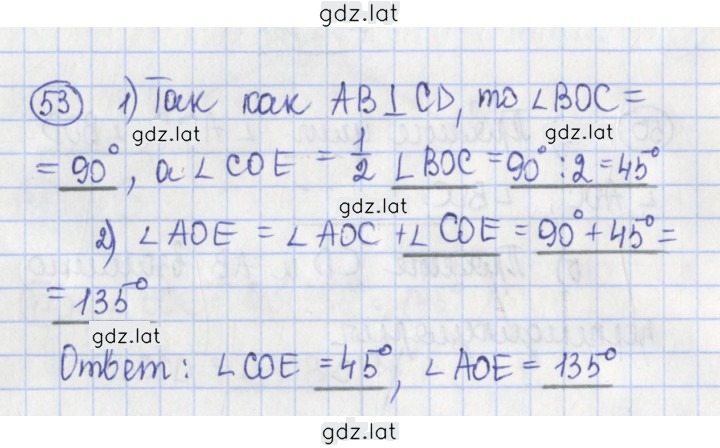 gdz.lat
53 1) Так как AB⊥CD, то ∠BOC =
gdz.lat
gdz.lat
= 90°, а ∠COE = 1/2 ∠BOC = 90° : 2 = 45°
gdz.lat
2) ∠AOE = ∠AOC + ∠COE = 90° + 45° =
= 135°
gdz.lat
Ответ: ∠COE = 45°, ∠AOE = 135°
gdz.lat